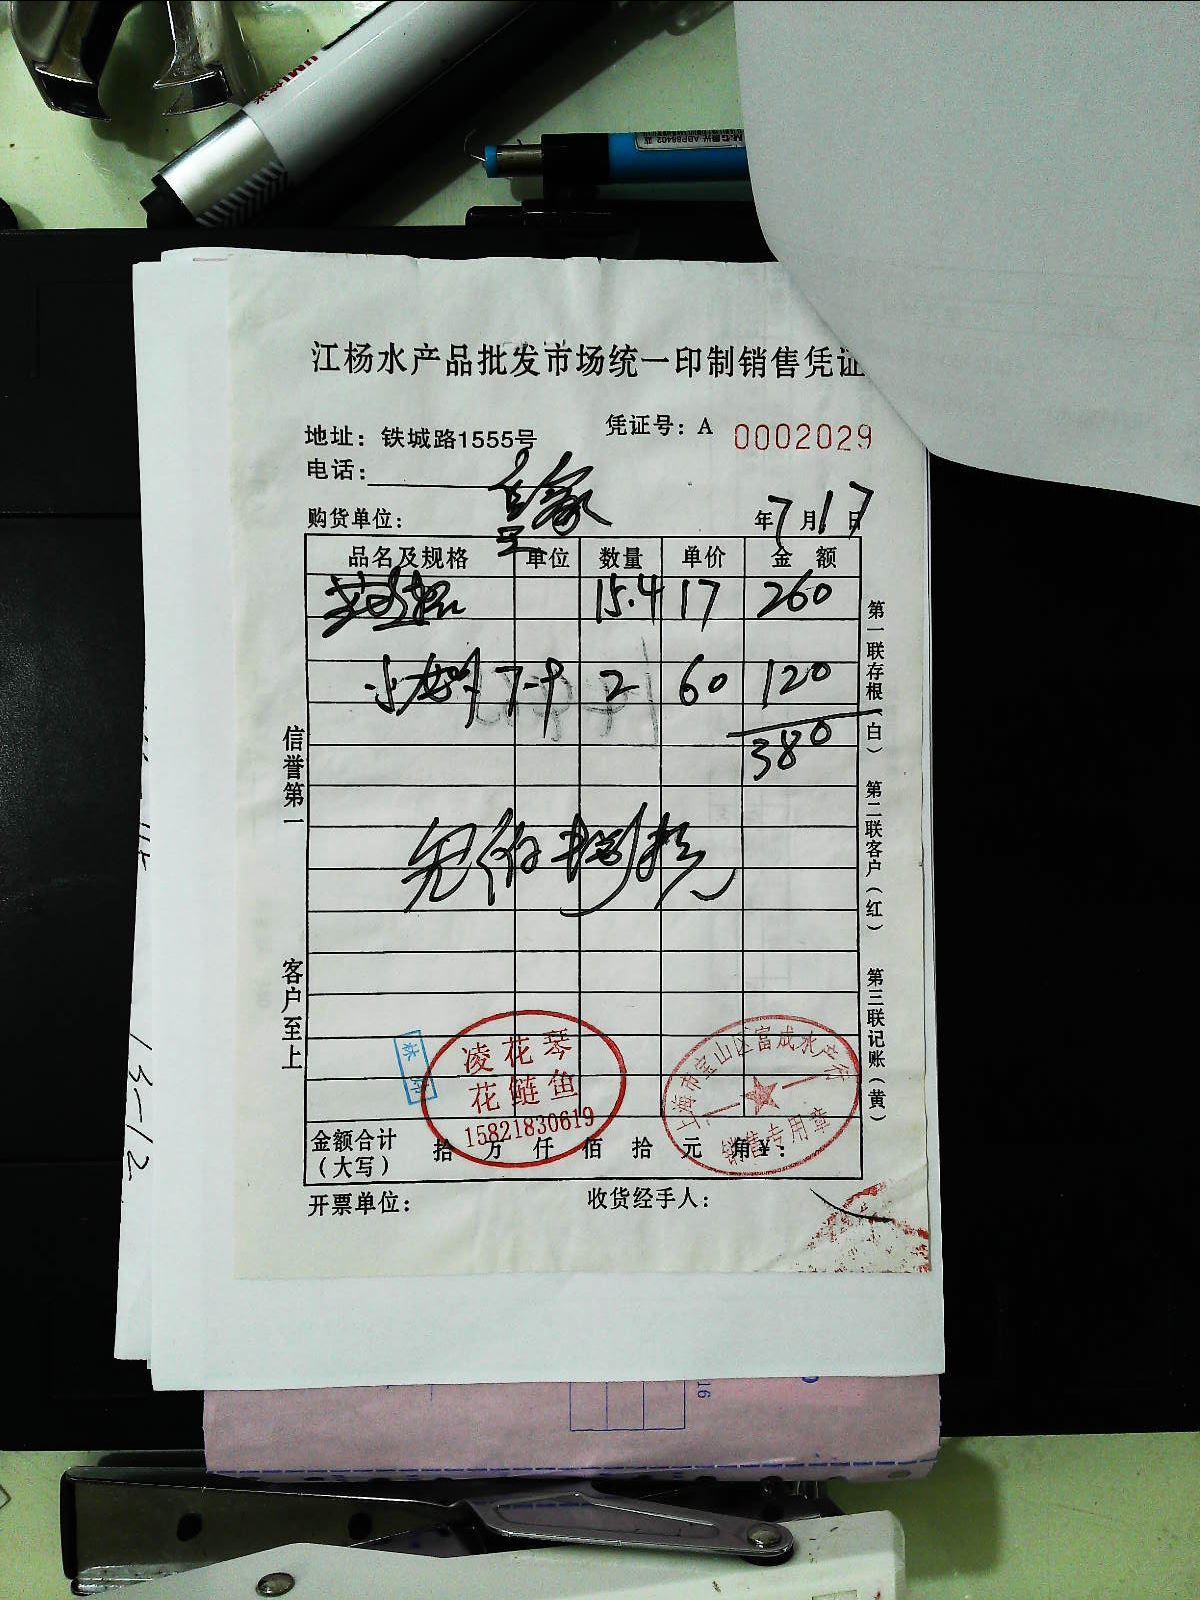 江杨水产品批发市场统一印制销售凭证
地址：铁城路1555号
凭证号：A 0002029
电话：
购货单位：
皇家
年7月17日
品名及规格 单位 数量 单价 金额
15.4 17 260
小龙虾 7-9 2 60 120
380
信誉第一
客户至上
第一联存根（白）
第二联客户（红）
第三联记账（黄）
凌花琴
花鲢鱼
15821830619
上海市宝山区富成水产行
销售专用章
金额合计（大写） 拾 万 仟 佰 拾 元 角 ¥：
开票单位：
收货经手人：
13-12
16